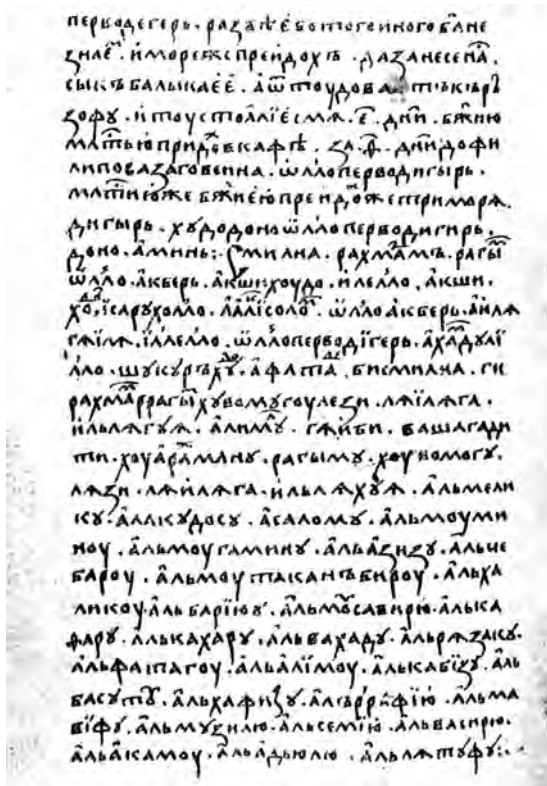 перводегерь. разѹмѣе бо того иного бл҃не
знає. и море же преидохъ. да занесе на.
сыкъ балыка ее. а ѿтоудова
зофу. и тоу стоꙗлі есмѧ. е҃. дни. бж҃їею
млтью придохъ в кафѣ. за. ѳ҃. дн҃и до фи
липова заговениа. ѡлло перводигырь.
млтїию же бж҃иею преидохже три морѧ.
дигырь. хѹдо доно ѡлло перводигирь.
доно. аминь: смилна. рахмамъ. рагы
ѡлло. акберь. акши хоудо. илелло, акши.
хо, їсарухолло. ѡлло акберь. аилѧ
гѧїлѧ. їллелло. ѡлло перводїгерь. ахадулї
лло. шукуръ. афата. бисмилна. ги
рахмаррагы хувомугоулези. лѧїлѧга.
ильлѧгуѧ. алиму. гѧиби. вашагади
ти. хоуарахману. рагыму. хоувомогу.
лѧзи. лѧилѧга. ильлѧхуѧ. альмели
ку. алакудосу. асалому. альмоуми
ноу. альмоугамину. альазизу. альче
бароу. альмоутаканъбироу. альха
ликоу. альбарїюу. альмосавирю. алька
фару. алькахару. альвахаду. альрѧзаку.
альфатагоу. альалїмоу. алькабїзу. аль
басуту. альхафизу. альррафїю. альма
вїфу. альмузилю. альсемїю. альвасирю.
альакамоу. альадьюлю. альлѧтуфу:.